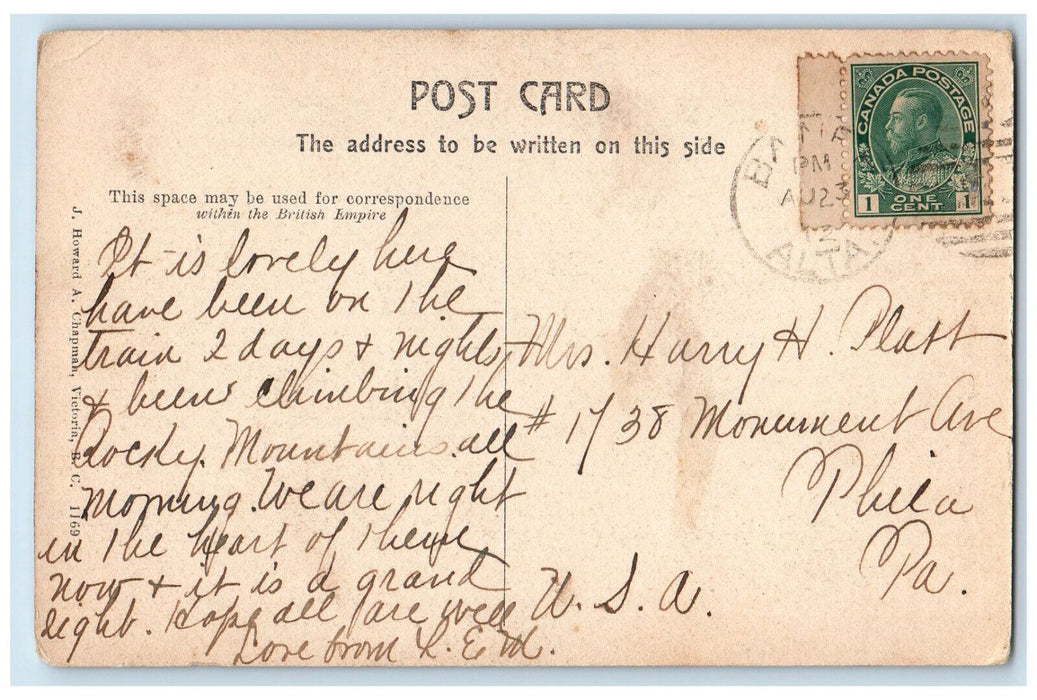 POST CARD
The address to be written on this side
CANADA POSTAGE
1 ONE CENT 1
PM
AU 23
ALTA.
This space may be used for correspondence
within the British Empire
J. Howard A. Chapman, Victoria, B. C. 1169
It is lovely here
have been on the
train 2 days + nights
+ been climbing the
Rocky Mountains all
morning. We are right
in the heart of them
now + it is a grand
sight. Hope all are well
Love from L. E. M.
Mrs. Harry H. Platt
# 1738 Monument Ave
Phila
Pa.
U. S. A.